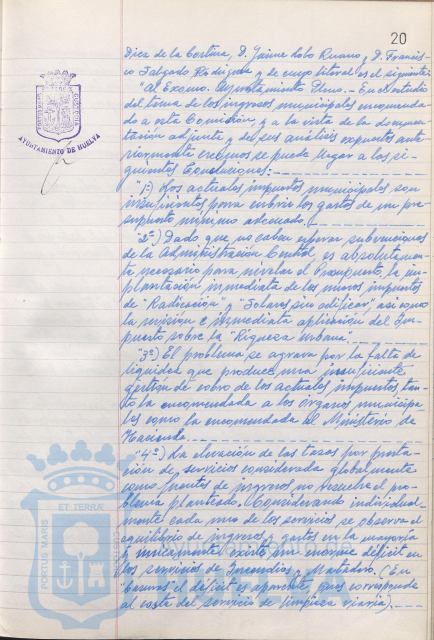 20
Dice de la Cortina, D. Jaime Lobo Ruano, y D. Francis-
co Salgado Rodríguez y de cuyo literal es el siguiente:
"Al Excmo. Ayuntamiento Pleno.- En estudio
del tema de los ingresos municipales encomenda
do a esta Comisión, y a la vista de la documen-
tación adjunta y de sus análisis expuestos ante-
riormente creemos se puede llegar a las si-
guientes Conclusiones:
"1ª) Los actuales impuestos municipales son
insuficientes para cubrir los gastos de un pre-
supuesto mínimo adecuado.
"2ª) Dado que no caben esperar subvenciones
de la Administración Central, es absolutamen-
te necesario para nivelar el Presupuesto, la im-
plantación inmediata de los nuevos impuestos
de "Radicación" y "Solares sin edificar" así como
la revisión e inmediata aplicación del Im-
puesto sobre la "Riqueza Urbana".
"3ª) El problema se agrava por la falta de
liquidez que produce una insuficiente
gestión de cobro de los actuales impuestos, tan-
to la encomendada a los órganos municipa-
les como la encomendada al Ministerio de
Hacienda.
"4ª) La elevación de las tasas por presta-
ción de servicios considerada globalmente
como fuentes de ingresos no resuelve el pro-
blema planteado. Considerando individual-
mente cada uno de los servicios se observa el
equilibrio de ingresos y gastos en la mayoría
y únicamente existe un enorme déficit en
los servicios de Incendios y Matadero. (En
basuras el déficit es aparente, pues corresponde
al coste del servicio de limpieza viaria).
AYUNTAMIENTO DE HUELVA
PORTUS MARIS
ET TERRÆ
CUSTODIA